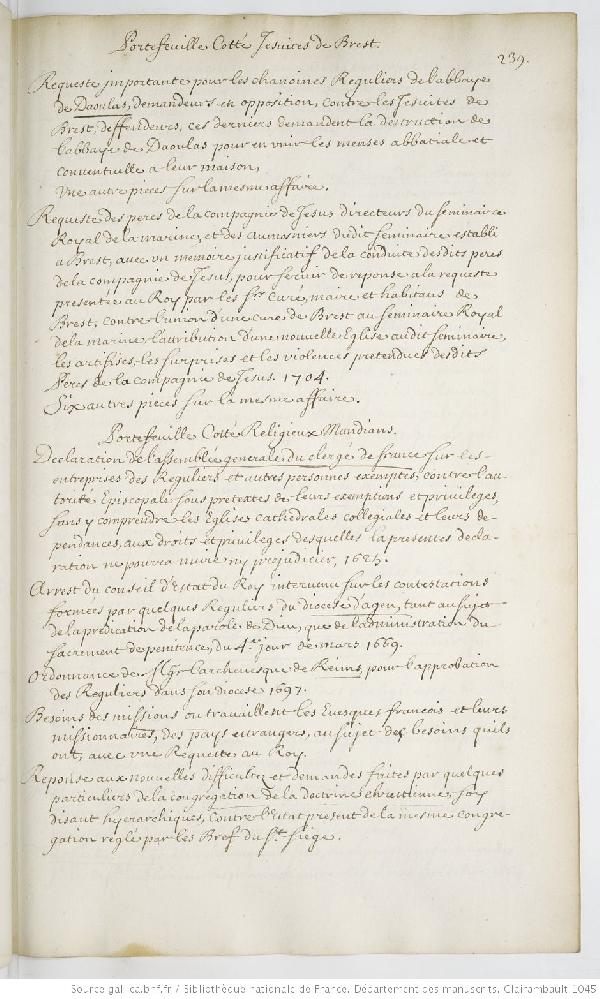 Portefeuille Cotté Jesuites de Brest.
239.
Requeste importante pour les chanoines Reguliers de l'abbaye
de Daoulas, demandeurs en opposition, contre les Jesuites de
Brest, deffendeurs, ces derniers demandent la destruction de
l'abbaye de Daoulas pour en unir les menses abbatiale et
conventuelle a leur maison,
Une autre pieces sur la mesme affaire.
Requeste des peres de la compagnie de Jesus directeurs du seminaire
Royal de la marine, et des aumosniers dudit seminaire establi
a Brest, avec un memoire justificatif de la conduite desdits peres
de la compagnie de Jesus, pour servir de reponse a la requeste
presentée au Roy par les srs curé, maire et habitans de
Brest, contre l'union d'une cure de Brest au seminaire Royal
de la marine l'attribution d'une nouvelle Eglise audit seminaire,
les artifises, les surprises et les violences pretendues desdits
Peres de la compagnie de Jesus. 1704.
Six autres pieces sur la mesme affaire.
Portefeuille Cotté Religieux Mandians.
Declaration de l'assemblée generale du clergé de france sur les
entreprises des Reguliers et autres personnes exemptes, contre l'au-
torité Episcopale sous pretextes de leurs exemptions et privileges,
sans y comprendre les Eglises cathedrales collegiales et leurs de-
pendances, aux droits et privileges desquelles la presentes decla-
ration ne pourra nuire ny prejudicier, 1625.
Arrest du conseil d'Estat du Roy intervenu sur les contestations
formées par quelques Reguliers du diocese d'agen, tant au sujet
de la prédication de la parole de Dieu, que de l'administration du
sacrement de penitence, du 4e jour de mars 1669.
Ordonnance de Mgr l'archevesque de Reims, pour l'approbation
des Reguliers dans son diocese 1697.
Besoins des missions ou travaillent les Evesques francois et leurs
missionnaires, des pays etrangers, au sujet des besoins qu'ils
ont, avec une Requeste au Roy.
Reponse aux nouvelles difficultez et demandes faites par quelques
particuliers de la congregation de la doctrine chrestienne, soy
disant hyerarchiques, contre l'Estat present de la mesme congre-
gation reglé par les Bref du St. siége.
Source gallica.bnf.fr / Bibliothèque nationale de France. Département des manuscrits. Clairambault 1045